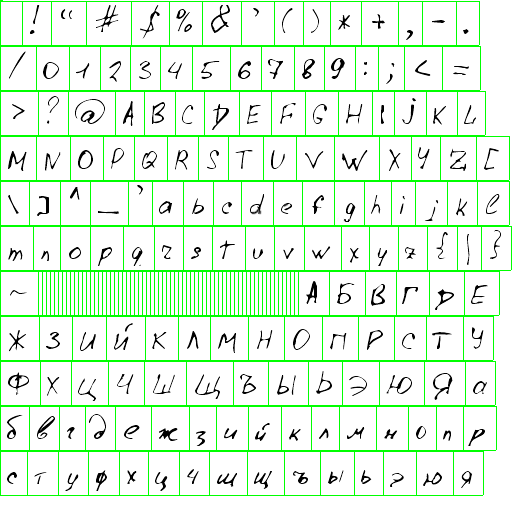 ! " # $ % & ' ( ) * + , - .
/ 0 1 2 3 4 5 6 7 8 9 : ; < =
> ? @ A B C D E F G H I J K L
M N O P Q R S T U V W X Y Z [
\ ] ^ _ ' a b c d e f g h i j k l
m n o p q r s t u v w x y z { | }
~ А Б В Г Д Е
Ж З И Й К Л М Н О П Р С Т У
Ф Х Ц Ч Ш Щ Ъ Ы Ь Э Ю Я а
б в г д е ж з и й к л м н о п р
с т у ф х ц ч ш щ ъ ы ь э ю я